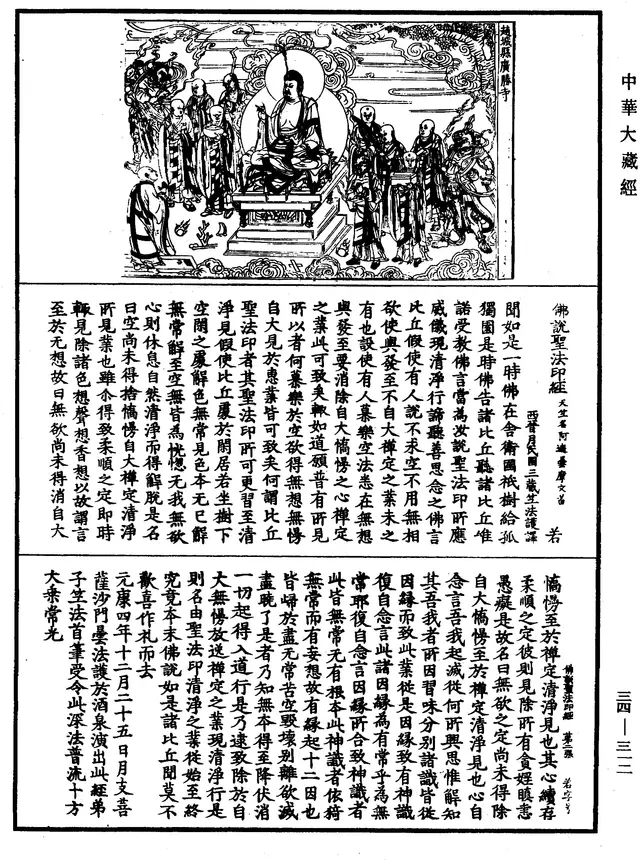 中華大藏經
趙城縣廣勝寺
佛說聖法印經 天竺名阿遮曇摩文啚 若
西晉月氏國三藏竺法護譯
聞如是一時佛在舍衛國祇樹給孤
獨園是時佛告諸比丘聽諸比丘唯
諾受教佛言當為汝說聖法印所應
威儀現清淨行諦聽善思念之佛言
比丘假使有人說不求空不用無相
欲使興發至不自大禪定之業未之
有也設使有人慕樂空法志在無想
興發至要消除自大憍慢之心禪定
之業此可致矣輒如道願普有所見
所以者何慕樂於空欲得無想無慢
自大見於惠業皆可致矣何謂比丘
聖法印者其聖法印所可更習至清
淨見假使比丘處於閑居若坐樹下
空閑之處解色無常見色本无已解
無常解至空無皆為恍惚无我無欲
心則休息自然清淨而得解脫是名
曰空尚未得捨憍慢自大禪定清淨
所見業也雖尒得致柔順之定即時
輒見除諸色想聲想香想以故謂言
至於无想故曰無欲尚未得消自大
佛說聖法印經 第二張 若字号
憍慢至於禪定清淨見也其心續存
柔順之定彼則見除所有貪婬瞋恚
愚癡是故名曰無欲之定尚未得除
自大憍慢至於禪定清淨見也心自
念言吾我起滅從何所興思惟解知
其吾我者所因習味分別諸識皆從
因緣而致此業從是因緣致有神識
復自念言此諸因緣為有常乎為無
常耶復自念言因緣所合致神識者
此皆無常无有根本此神識者依猗
無常而有妄想故有緣起十二因也
皆歸於盡无常苦空毀壞別離欲滅
盡曉了是者乃知無本得至降伏消
一切起得入道行是乃逮致除於自
大無慢放逸禪定之業現清淨行是
則名曰聖法印清淨之業從始至終
究竟本末佛說如是諸比丘聞莫不
歡喜作礼而去
元康四年十二月二十五日月支菩
薩沙門曇法護於酒泉演出此經弟
子竺法首筆受令此深法普流十方
大乘常光
三四—三一二